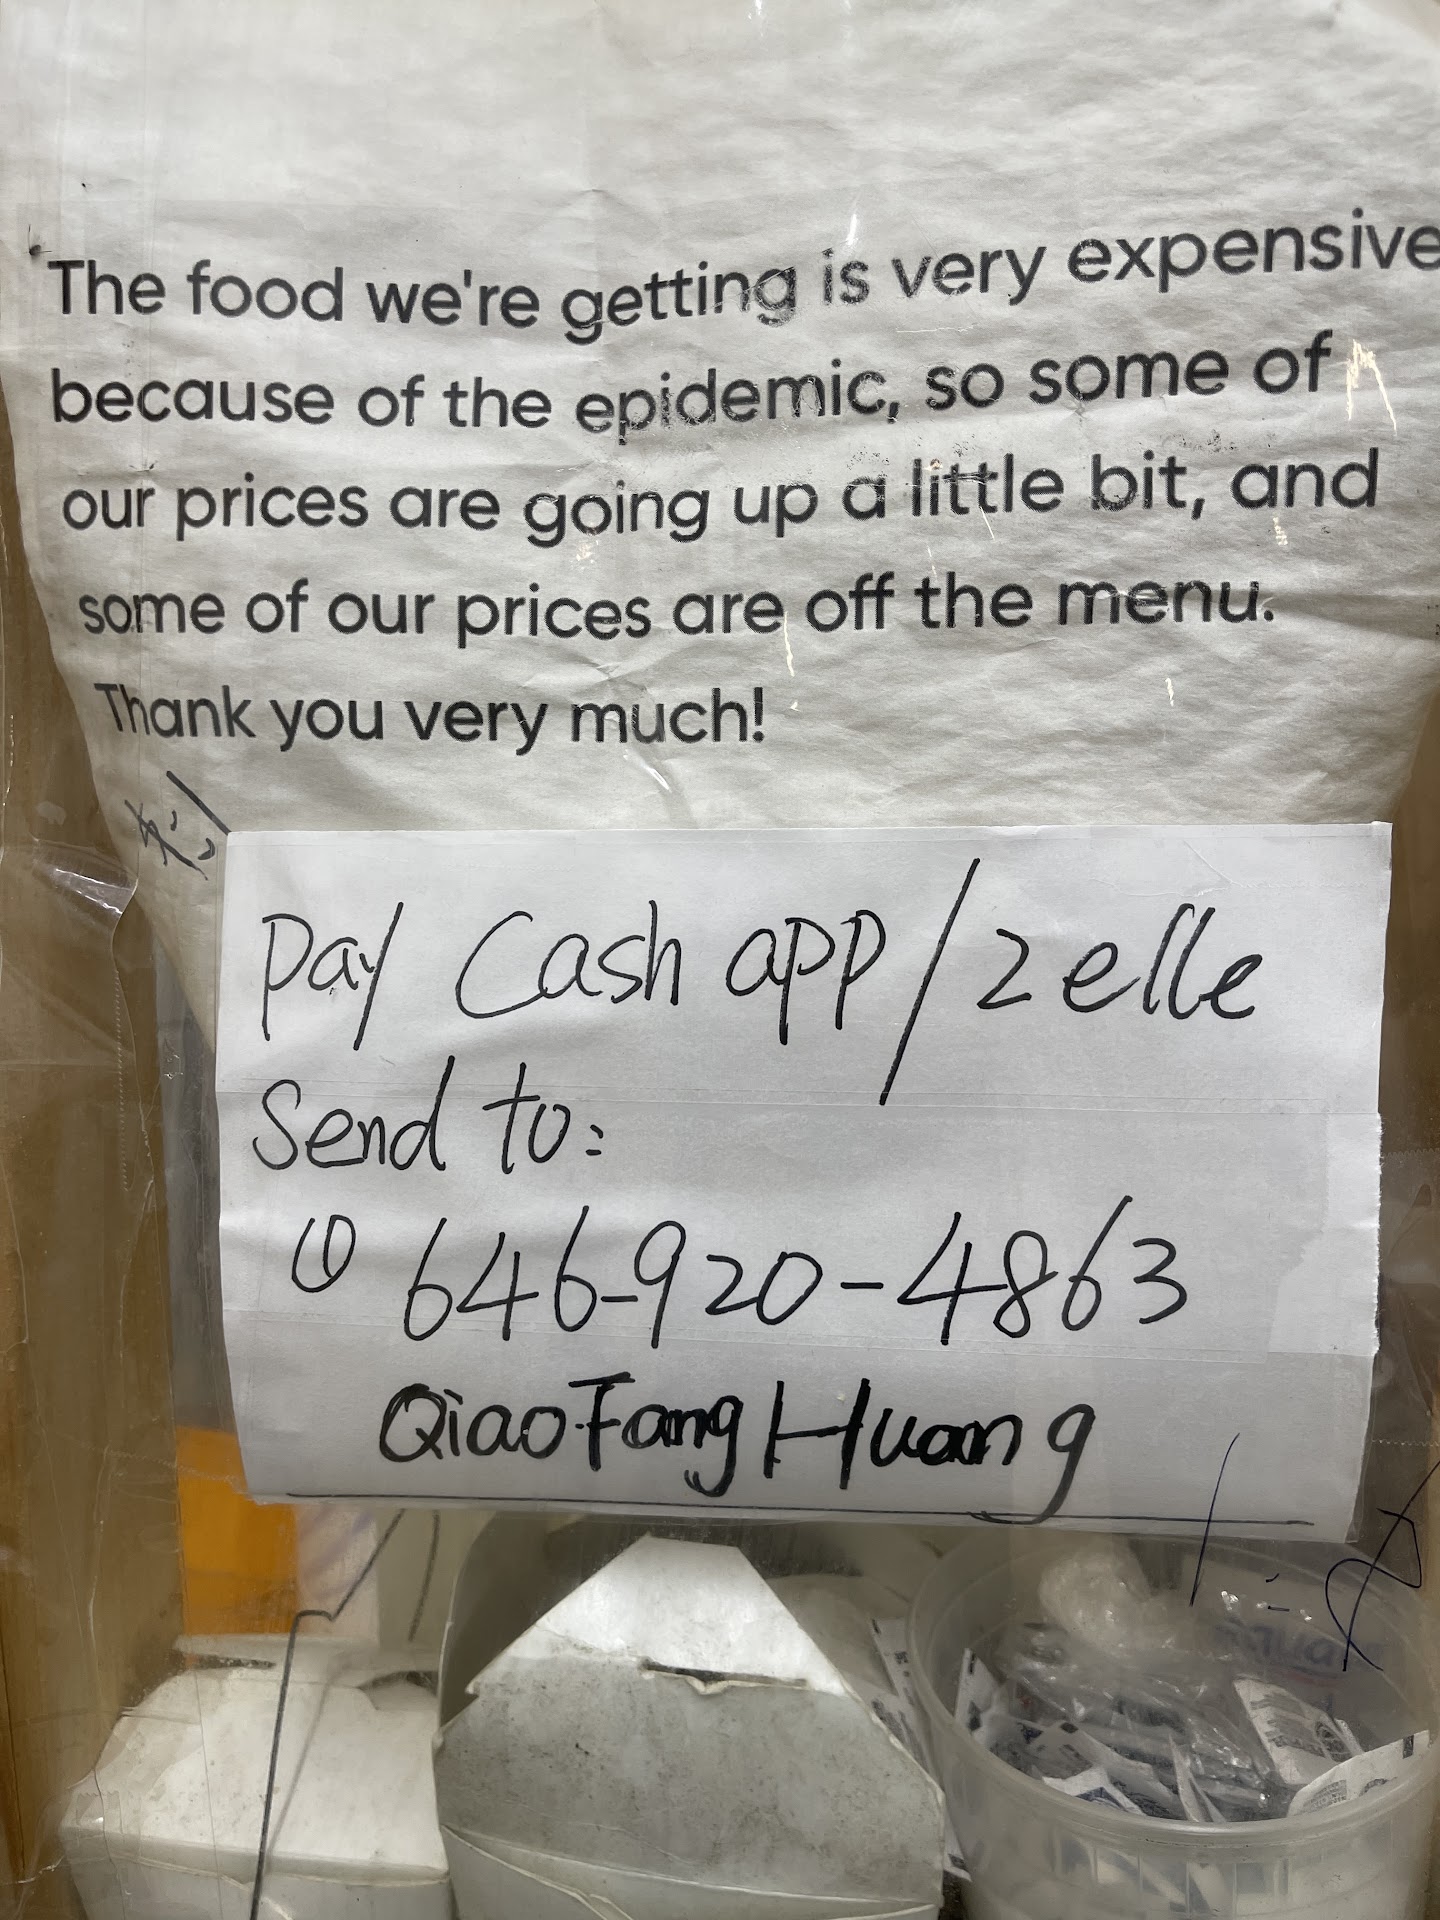 The food we're getting is very expensive
because of the epidemic, so some of
our prices are going up a little bit, and
some of our prices are off the menu.
Thank you very much!
Pay Cash app/zelle
Send to:
① 646-920-4863
QiaoFang Huang